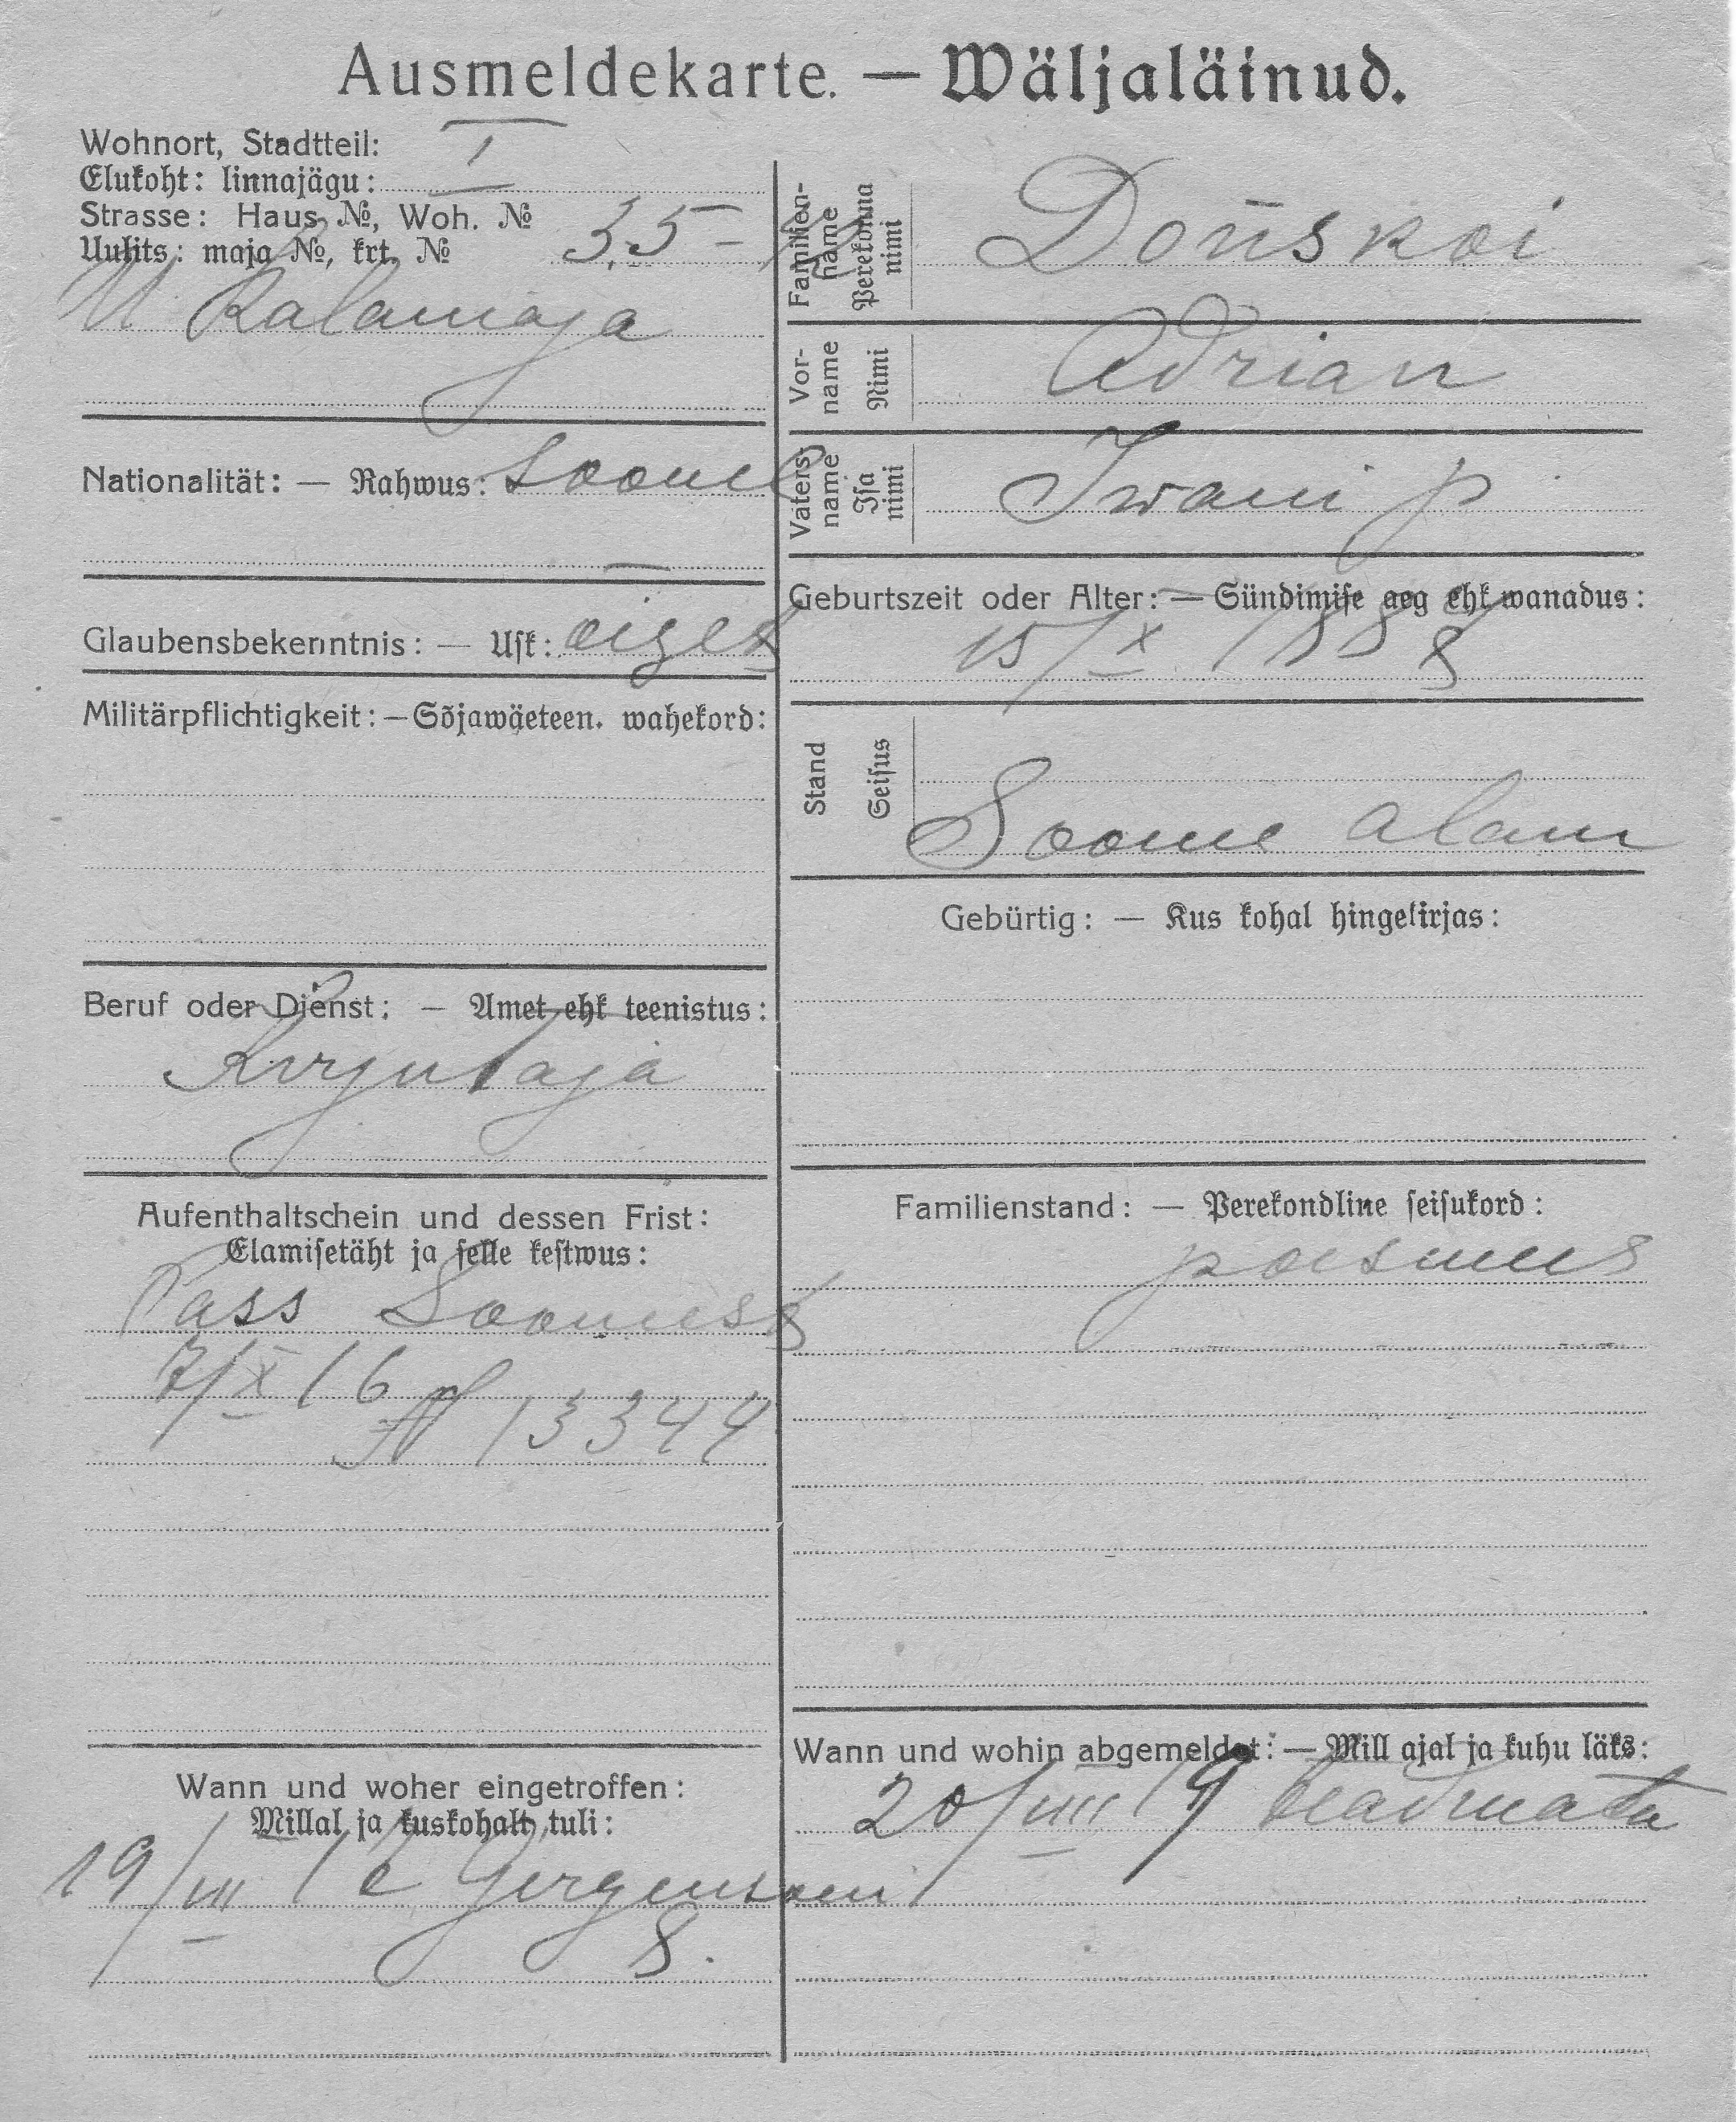 Ausmeldekarte. — Wäljaläinud.
Wohnort, Stadtteil:
Elukoht: linnajägu: I
Strasse: Haus №, Woh. №
Uulits: maja №, krt. № 35 -
Kalamaja
Nationalität: — Rahwus: Soome
Glaubensbekenntnis: — Usk: õigeus
Militärpflichtigkeit: — Sõjawäeteen. wahekord:
Beruf oder Dienst: — Amet ehk teenistus:
Kirjutaja
Aufenthaltschein und dessen Frist:
Elamisetäht ja selle kestwus:
Pass Soomest
7/X 16
№ 13344
Wann und woher eingetroffen:
Millal ja kuskohalt tuli:
19/VIII
8.
Familien-
name
Perekonna
nimi
Donskoi
Vor-
name
Nimi
Adrian
Vaters-
name
Isa
nimi
Iwani p
Geburtszeit oder Alter: — Sündimise aeg ehk wanadus:
15/X 1888
Stand
Seisus
Soome alam
Gebürtig: — Kus kohal hingekirjas:
Familienstand: — Perekondline seisukord:
poismees
Wann und wohin abgemeldet: — Mill ajal ja kuhu läks:
20/VIII 19 teadmata